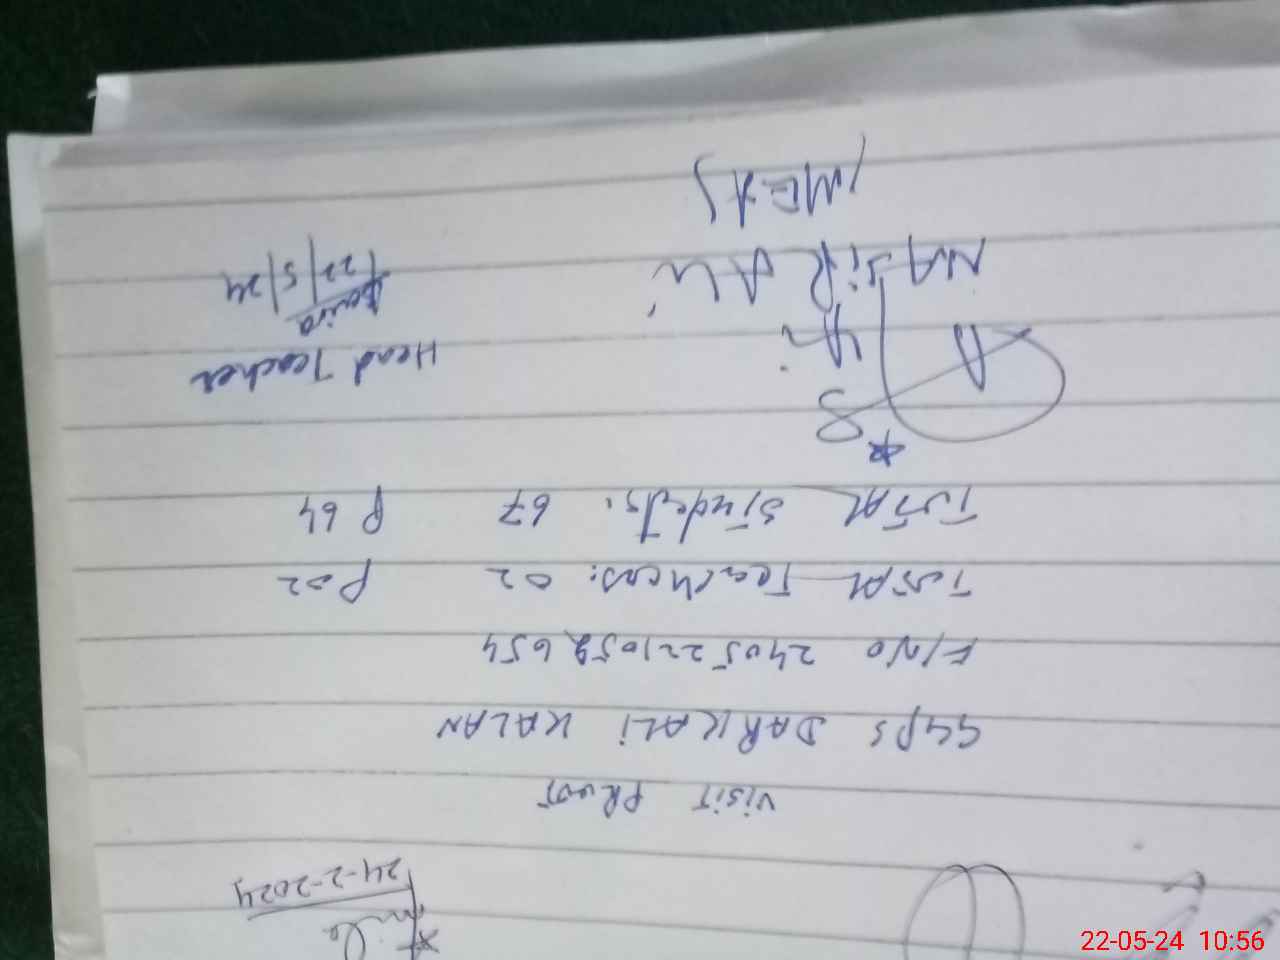 24-2-2024
VISIT PROOF
GGPS DARKALI KALAN
F/NO 2405221059654
TOTAL Teachers: 02 P 02
TOTAL Students: 67 P 64
Head Teacher
22/5/24
NASiR ALi
(MEA)
22-05-24 10:56